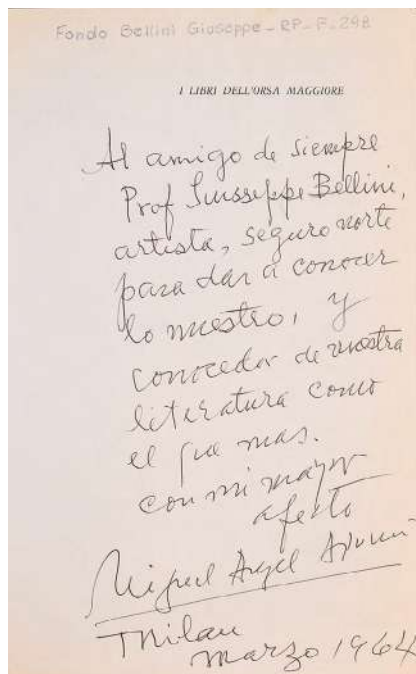 Fondo Bellini Giuseppe - RP - F - 298
I LIBRI DELL'ORSA MAGGIORE
Al amigo de siempre
Prof Giusseppe Bellini,
artista, seguro norte
para dar a conocer
lo nuestro, y
conocedor de nuestra
literatura como
el que mas.
con mi mayor
afecto
Miguel Angel Asturias
Milan
marzo 1964